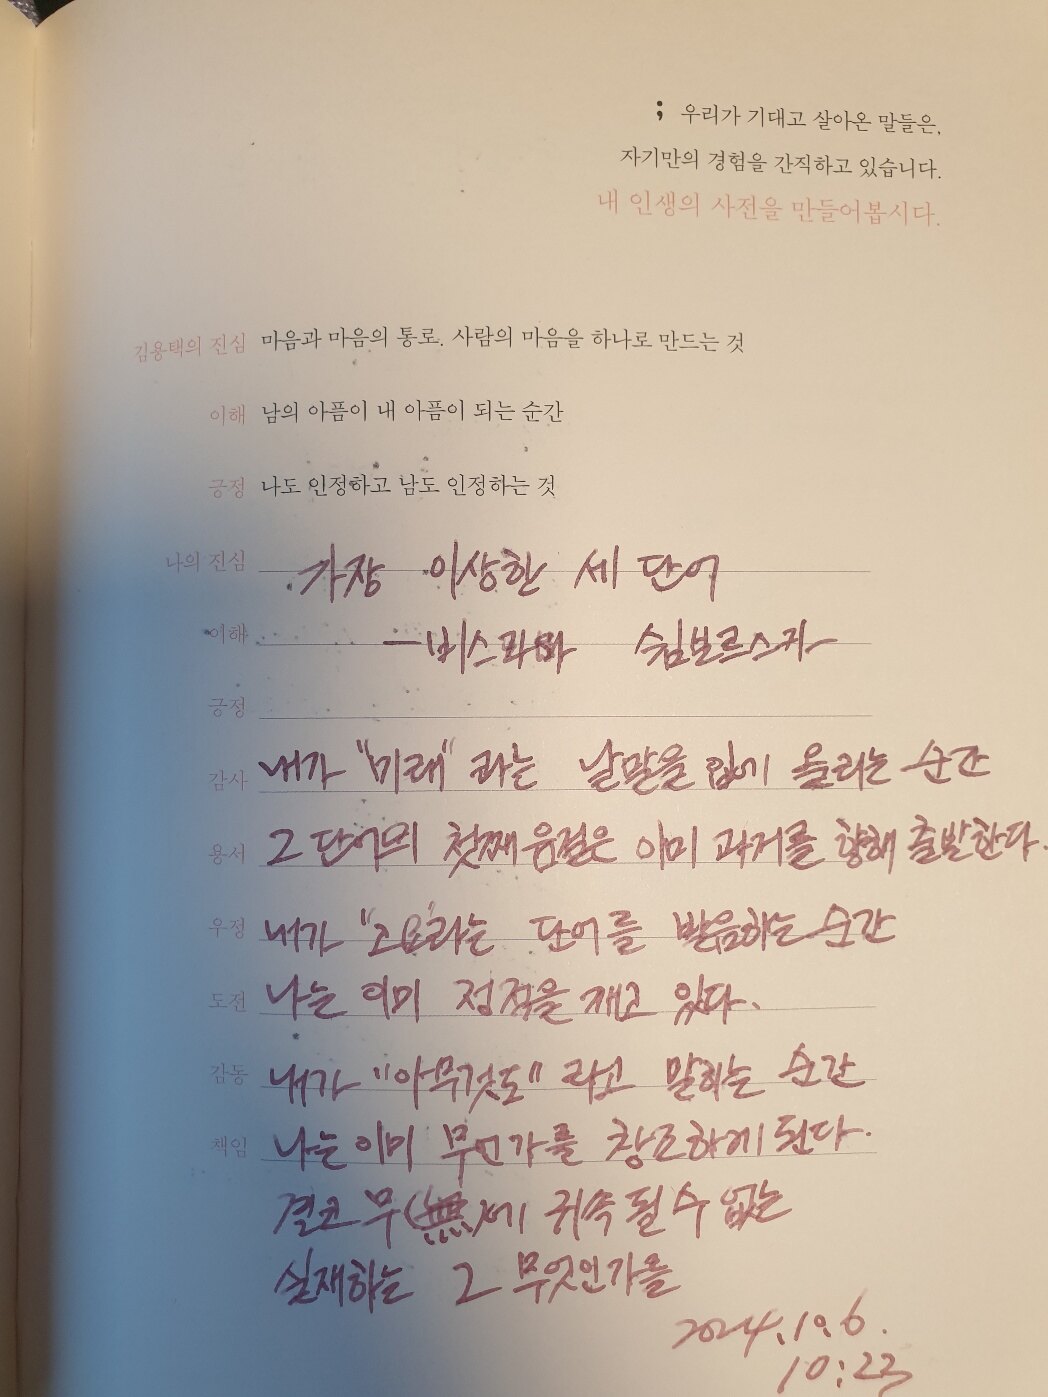 ; 우리가 기대고 살아온 말들은,
자기만의 경험을 간직하고 있습니다.
내 인생의 사전을 만들어봅시다.
김용택의 진심 마음과 마음의 통로. 사람의 마음을 하나로 만드는 것
이해 남의 아픔이 내 아픔이 되는 순간
긍정 나도 인정하고 남도 인정하는 것
나의 진심 가장 이상한 세 단어
이해 -비스와바 쉼보르스카
긍정
감사 내가 "미래"라는 낱말을 입에 올리는 순간
용서 그 단어의 첫째 음절은 이미 과거를 향해 출발한다.
우정 내가 "고요"라는 단어를 발음하는 순간
도전 나는 이미 정적을 깨고 있다.
감동 내가 "아무것도"라고 말하는 순간
책임 나는 이미 무언가를 창조하게 된다.
결코 무(無)에 귀속될 수 없는
실재하는 그 무엇인가를
2024.10.6.
10:23